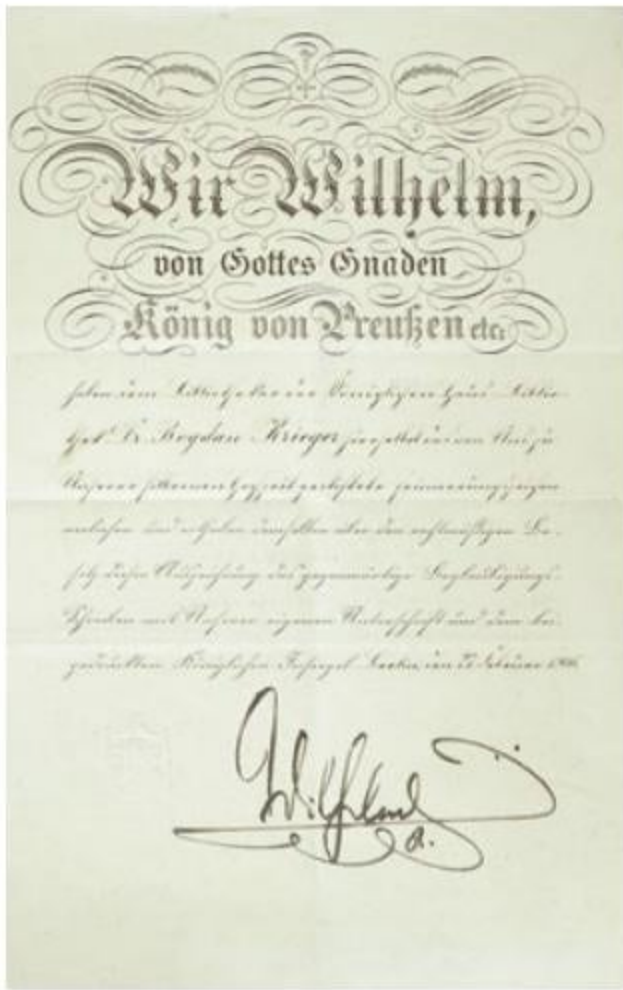 Wir Wilhelm,
von Gottes Gnaden
König von Preußen etc:
haben dem Bibliothekar der Königlichen Haus Biblio-
thek Dr Bogdan Krieger hierselbst die von Uns zu
Unserer silbernen Hochzeit gestiftete Erinnerungszeichen
verliehen und ertheilen demselben über den rechtmäßigen Be-
sitz dieser Auszeichnung das gegenwärtige Beglaubigungs-
Schreiben mit Unserer eigenen Unterschrift und dem bei-
gedruckten Königlichen Insiegel Berlin den Februar
Wilhelm
R.